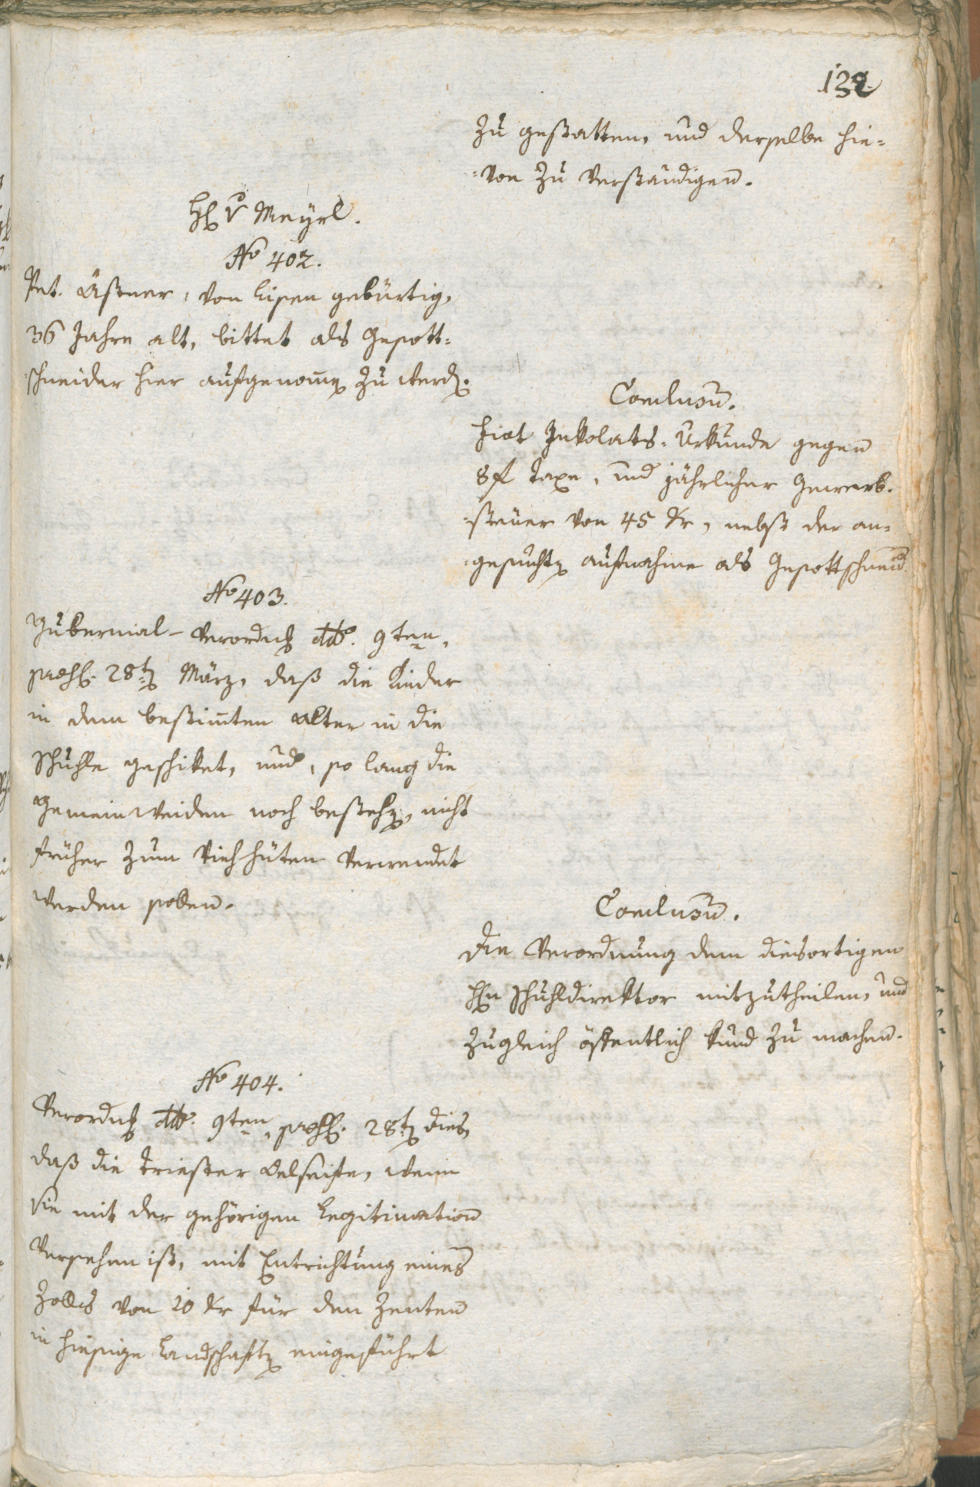 132
zu gestatten, und derselbe hie=
=von zu verständigen.
H v Meÿrl.
No 402.
Pet. Aßner, von Lisen gebürtig,
36 Jahre alt, bittet als Gesott=
=schneider hier aufgenomen zu werd.
Conclusum.
Fiat Inkolats-Urkunde gegen
8 f Taxe, und jährlicher Gewerb=
=steuer von 45 kr, nebst der an=
=gesuchten Aufnahme als Gesottschneid
No 403.
Gubernial-Verordng ddo. 9ten,
praes. 28ten März, daß die Kinder
in dem bestimten alter in die
Schuhle geschiket, und, so lang die
Gemeinweiden noch bestehen, nicht
früher zum Viehhüten verwendet
werden sollen.
Conclusum.
Die Verordnung dem diesortigen
Hn Schuhldirektor mitzutheilen, und
zugleich öffentlich kund zu machen.
No 404.
Verordng ddo. 9ten, praes. 28ten dies,
daß die Triester Oelseife, wenn
sie mit der gehörigen Legitimation
versehen ist, mit Entrichtung eines
Zolles von 20 kr für den Zenten
in hiesige Landschaften eingeführt